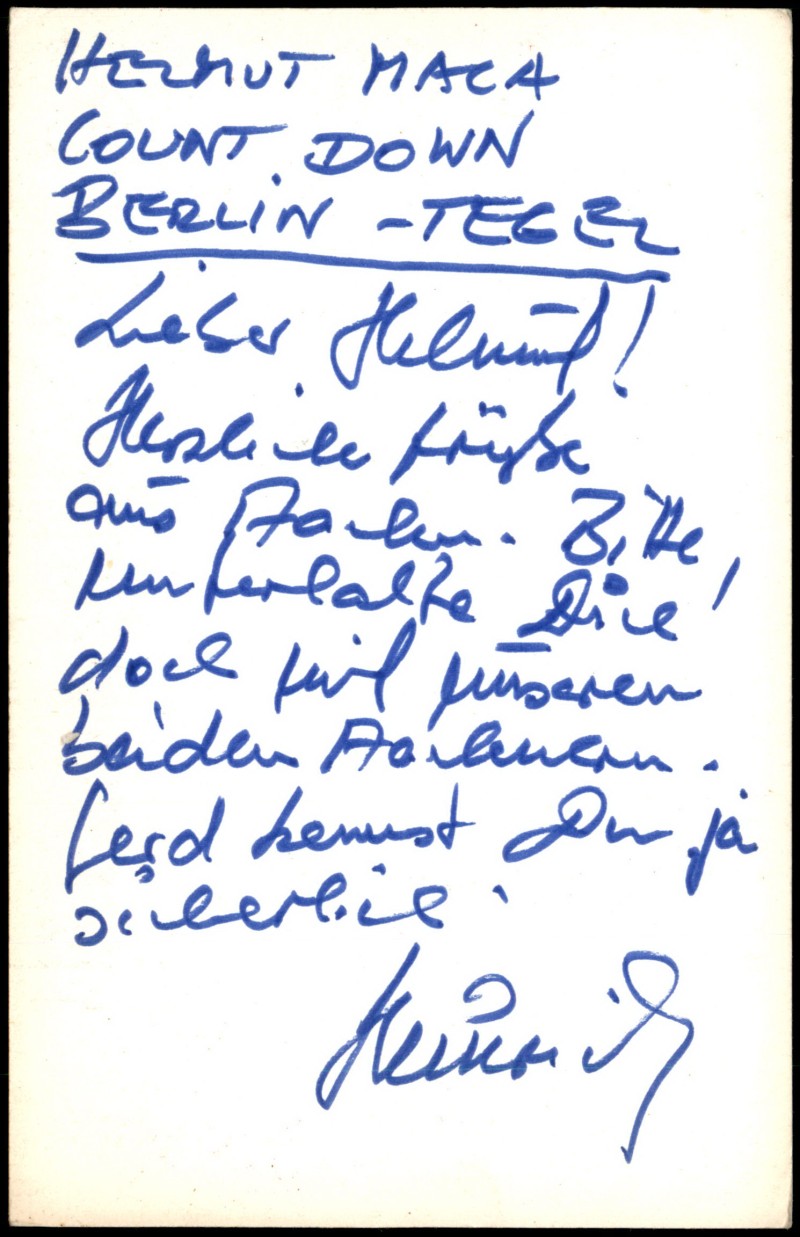 HELMUT MACA
COUNT DOWN
BERLIN - TEGEL
Lieber Helmut!
Herzliche Grüße
aus Aachen. Bitte,
unterhalte Dich
doch mit unseren
beiden Aachenern.
Gerd kennst Du ja
sicherlich.
Heinrich